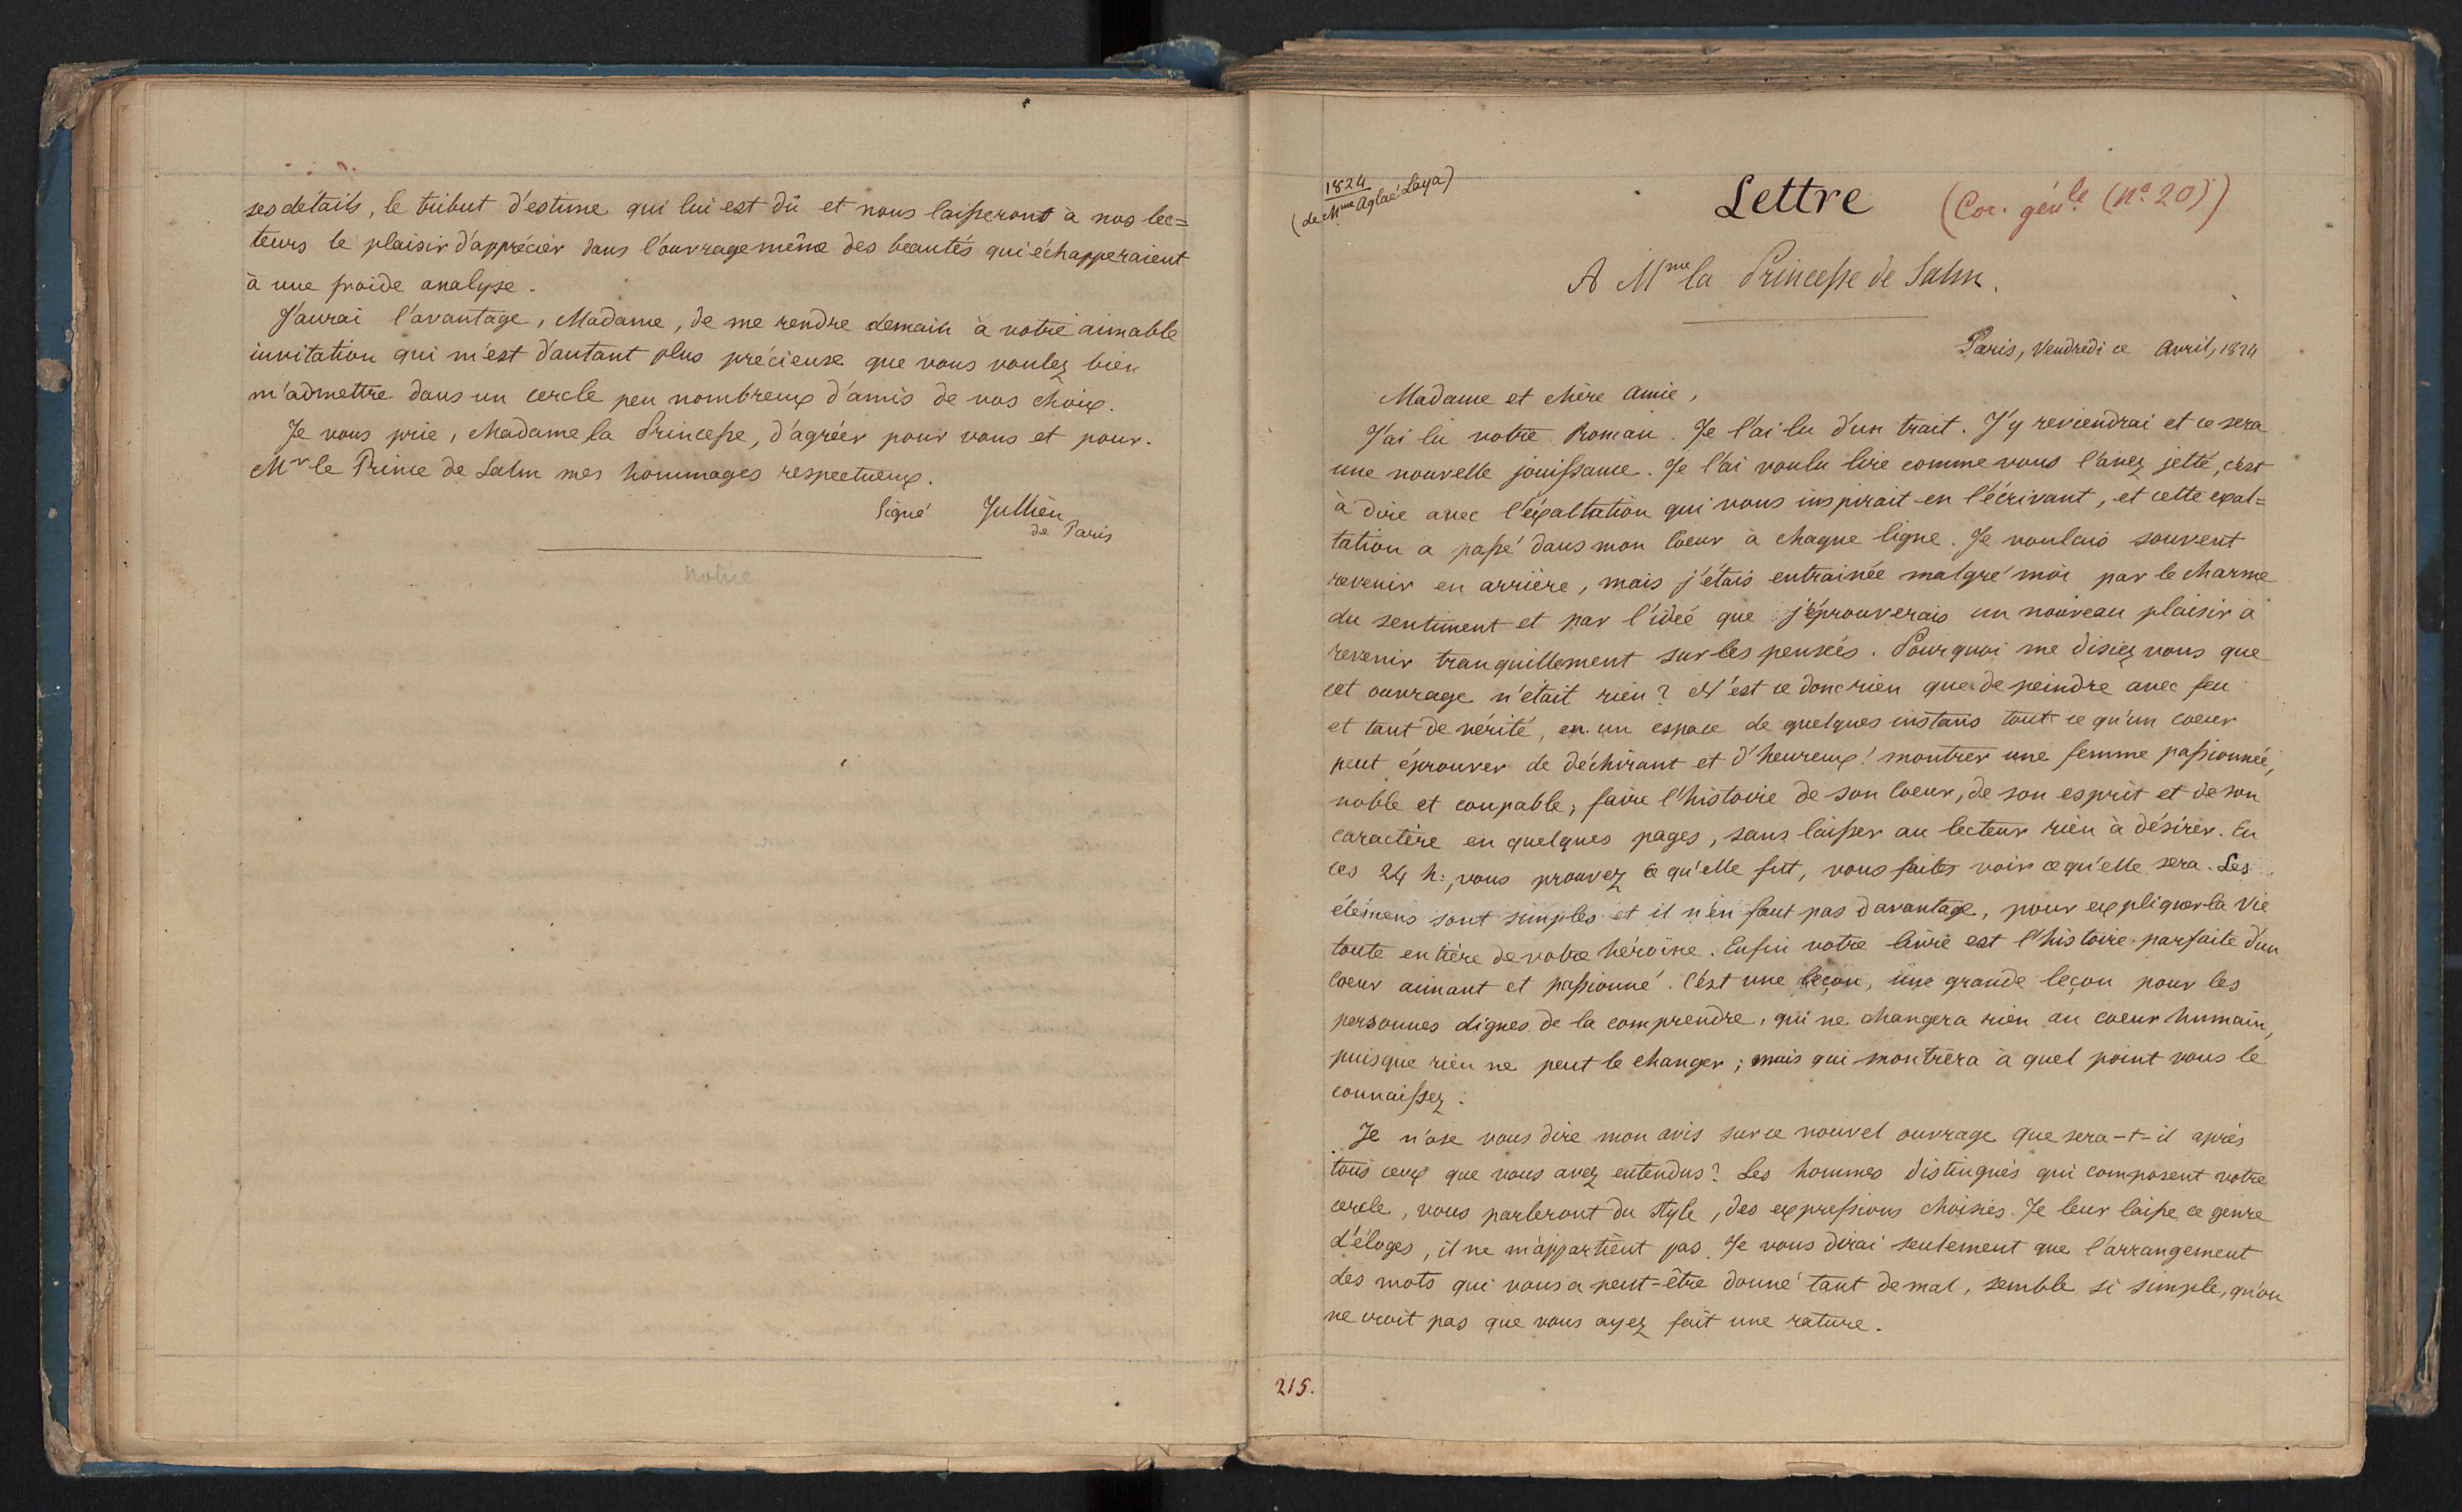 ses détails, le tribut d'estime qui lui est dû et nous laisserons à nos lec=
teurs le plaisir d'apprécier dans l'ouvrage même des beautés qui échapperaient
à une froide analyse.
J'aurai l'avantage, Madame, de me rendre demain à votre aimable
invitation qui m'est d'autant plus précieuse que vous voulez bien
m'admettre dans un cercle peu nombreux d'amis de vos choix.
Je vous prie, Madame la Princesse, d'agréer pour vous et pour
Mr le Prince de Salm mes hommages respectueux.
Signé Jullien
de Paris
1824
(de Mme Aglaé Laya)
Lettre (Cor. génle (No 20))
A Mme la Princesse de Salm.
Paris, Vendredi ce Avril, 1824
Madame et chère amie,
J'ai lu votre Roman. Je l'ai lu d'un trait. J'y reviendrai et ce sera
une nouvelle jouissance. Je l'ai voulu lire comme vous l'avez jetté, c'est
à dire avec l'éxaltation qui vous inspirait en l'écrivant, et cette exal=
tation a passé dans mon coeur à chaque ligne. Je voulais souvent
revenir en arrière, mais j'étais entrainée malgré moi par le charme
du sentiment et par l'idée que j'éprouverais un nouveau plaisir à
revenir tranquillement sur les pensées. Pourquoi me disiez vous que
cet ouvrage n'était rien? N'est ce donc rien que de peindre avec feu
et tant de vérité, en un espace de quelques instans tout ce qu'un coeur
peut éprouver de déchirant et d'heureux! montrer une femme passionnée,
noble et coupable, faire l'histoire de son coeur, de son esprit et de son
caractère en quelques pages, sans laisser au lecteur rien à désirer. En
ces 24 h:, vous prouvez ce qu'elle fut, vous faites voir ce qu'elle sera. Les
élémens sont simples et il n'en faut pas davantage, pour expliquer la vie
toute entière de votre héroïne. Enfin votre livre est l'histoire parfaite d'un
coeur aimant et passionné. C'est une leçon, une grande leçon pour les
personnes dignes de la comprendre, qui ne changera rien au coeur humain,
puisque rien ne peut le changer; mais qui montrera à quel point vous le
connaissez.
Je n'ose vous dire mon avis sur ce nouvel ouvrage que sera-t-il après
tous ceux que vous avez entendus? Les hommes distingués qui composent votre
cercle, vous parleront du style, des expressions choisies. Je leur laisse ce genre
d'éloges, il ne m'appartient pas. Je vous dirai seulement que l'arrangement
des mots qui vous a peut=être donné tant de mal, semble si simple, qu'on
ne croit pas que vous ayez fait une rature.
215.